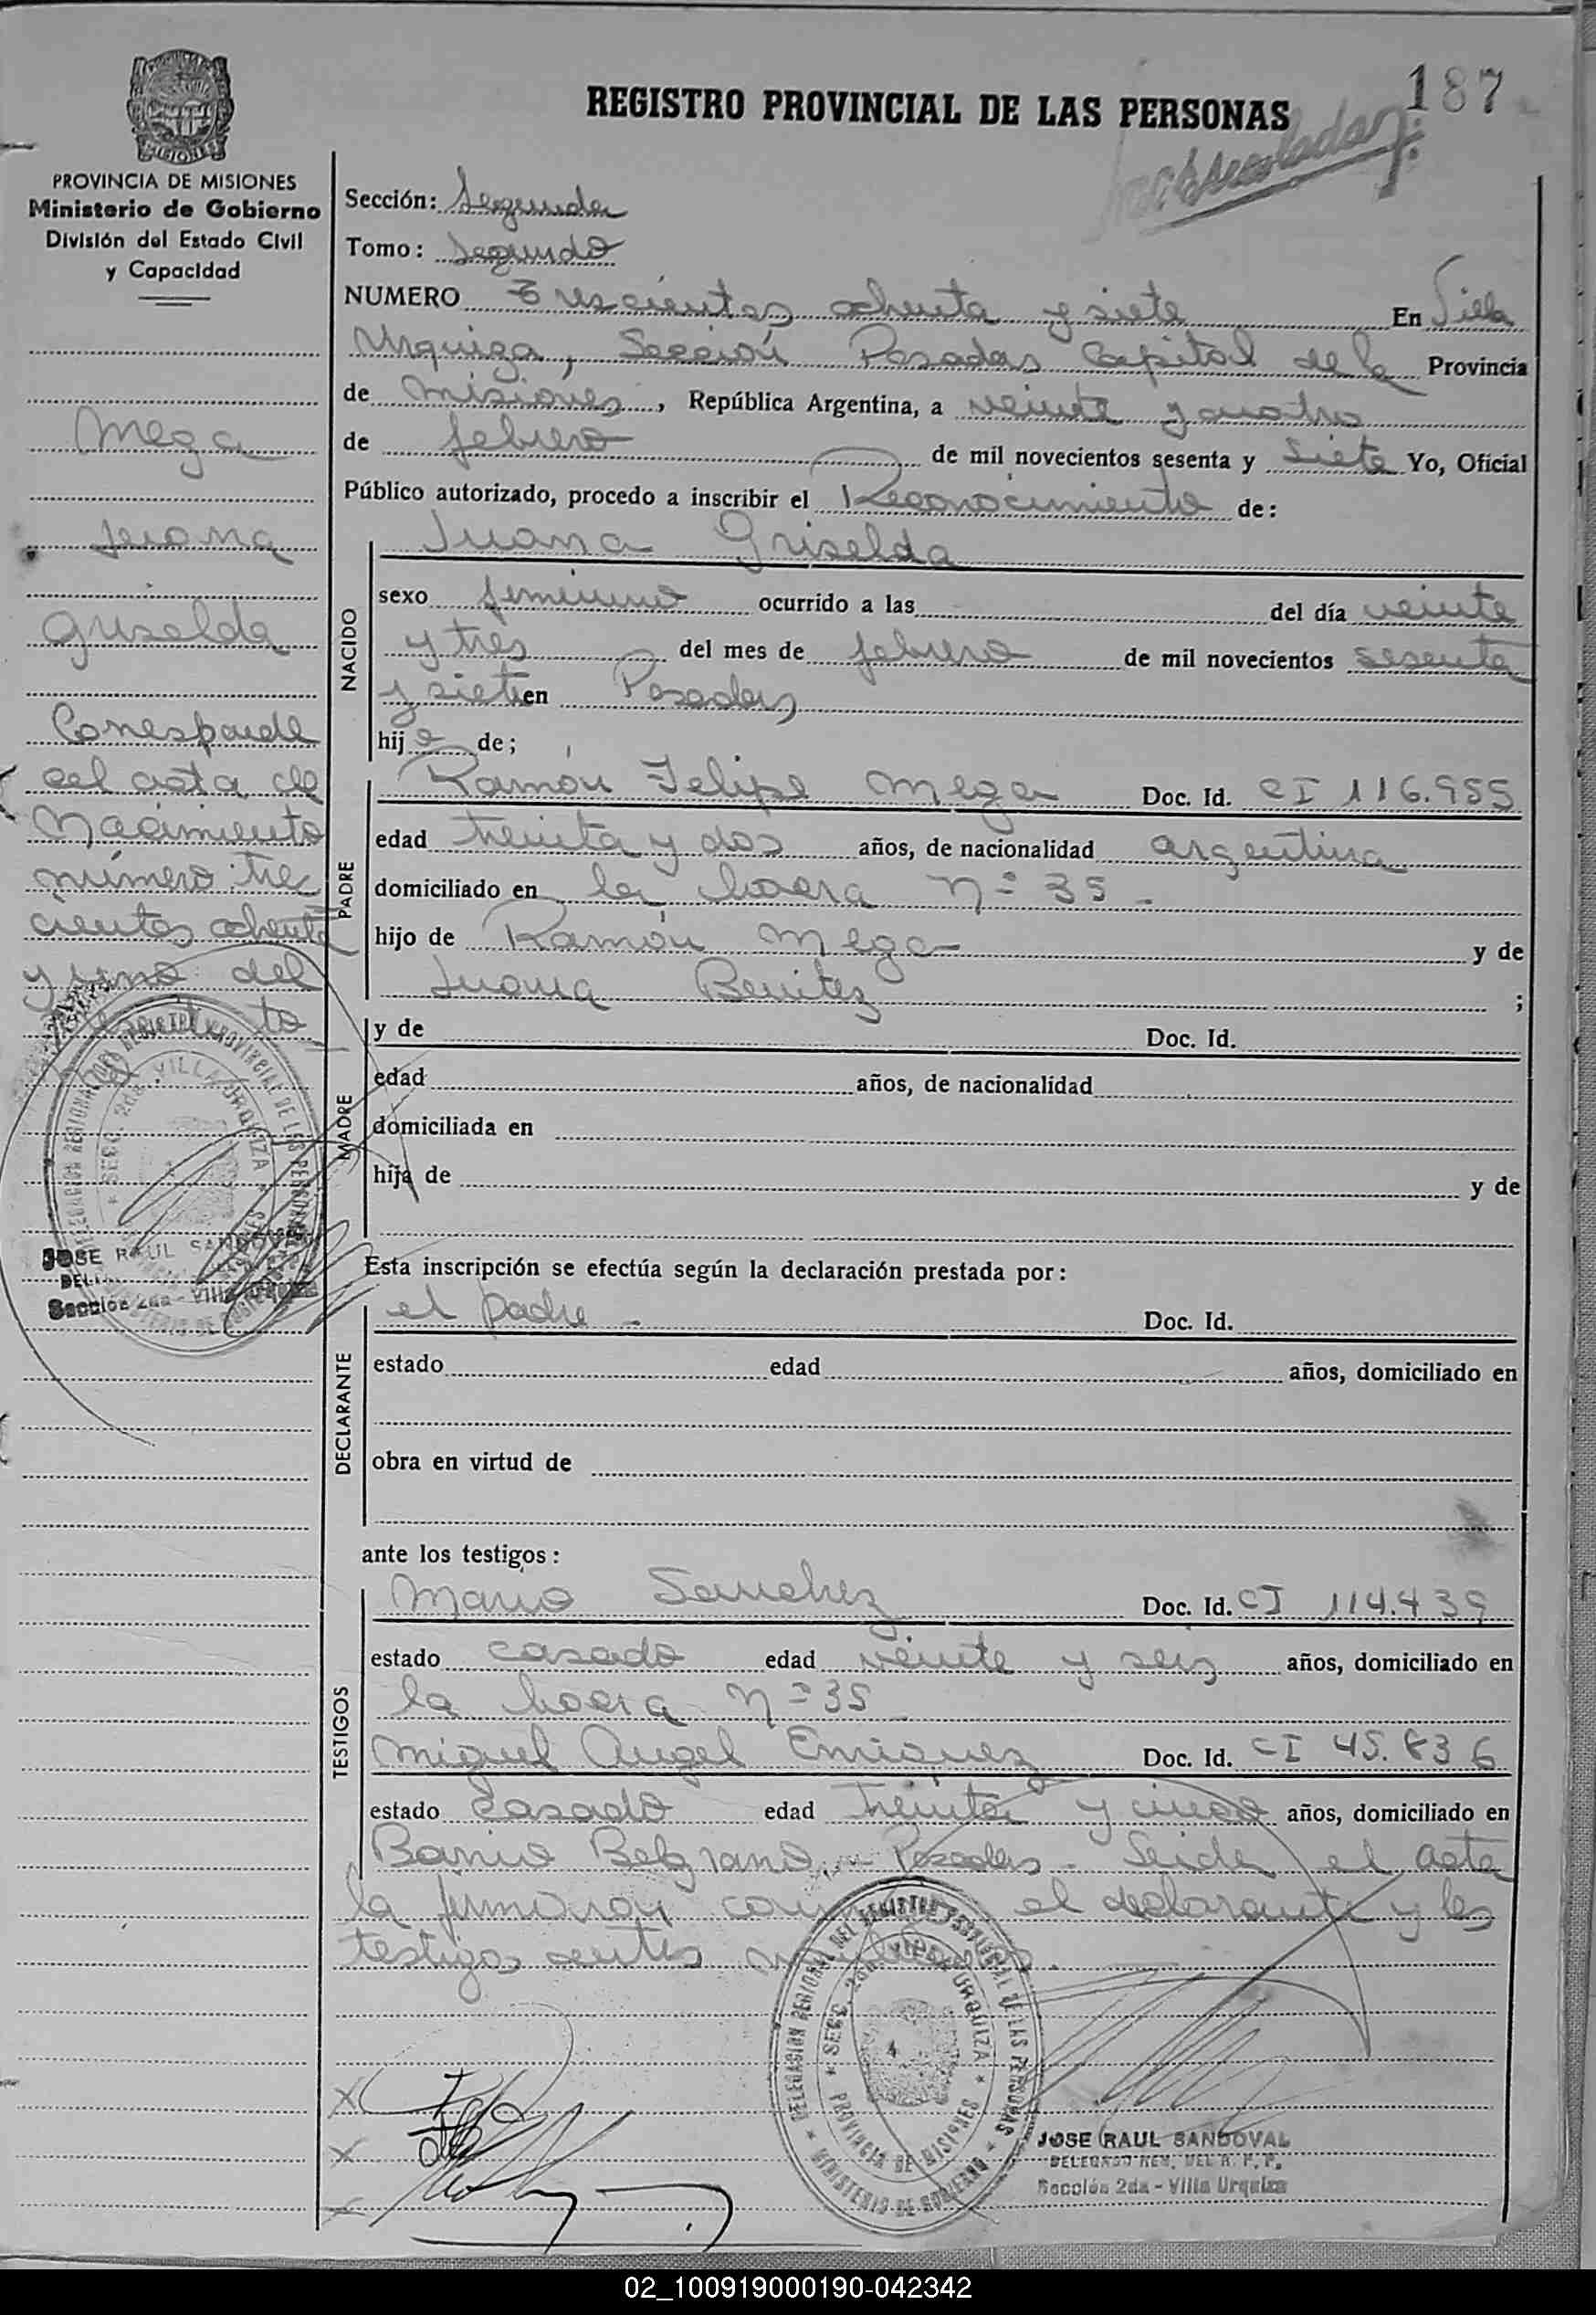 REGISTRO PROVINCIAL DE LAS PERSONAS
187
MISIONES
PROVINCIA DE MISIONES
Ministerio de Gobierno
División del Estado Civil
y Capacidad
Mega
Juana
Griselda
Corresponde
al acta de
Nacimiento
número tres
cientos ochenta
y uno del
JOSE RAUL SANDOVAL
Sección 2da - Villa Urquiza
Sección: Segunda
Tomo: Segundo
NUMERO Trescientos ochenta y siete En Villa
Urquiza, Sección Posadas Capital de la Provincia
de Misiones, República Argentina, a veinte y cuatro
de febrero de mil novecientos sesenta y siete Yo, Oficial
Público autorizado, procedo a inscribir el Reconocimiento de:
NACIDO
Juana Griselda
sexo femenino ocurrido a las del día veinte
y tres del mes de febrero de mil novecientos sesenta
y siete en Posadas
hija de;
PADRE
Ramón Felipe Mega Doc. Id. CI 116.955
edad treinta y dos años, de nacionalidad argentina
domiciliado en la chacra nº 35 -
hijo de Ramón Mega y de
Juana Benitez ;
MADRE
y de Doc. Id.
edad años, de nacionalidad
domiciliada en
hija de y de
Esta inscripción se efectúa según la declaración prestada por:
DECLARANTE
el padre - Doc. Id.
estado edad años, domiciliado en
obra en virtud de
ante los testigos:
TESTIGOS
Mario Sanchez Doc. Id. CI 114.439
estado casado edad veinte y seis años, domiciliado en
la chacra nº 35
Miguel Angel Enriquez Doc. Id. CI 45.836
estado casado edad treinta y cinco años, domiciliado en
Barrio Belgrano - Posadas - Leida el acta
la firmaron el declarante y los
testigos antes
DELEGACION REGIONAL DEL REGISTRO PROVINCIAL DE LAS PERSONAS * MINISTERIO DE GOBIERNO *
SECC. 2da. VILLA URQUIZA * PROVINCIA DE MISIONES *
JOSE RAUL SANDOVAL
Sección 2da - Villa Urquiza
02_100919000190-042342